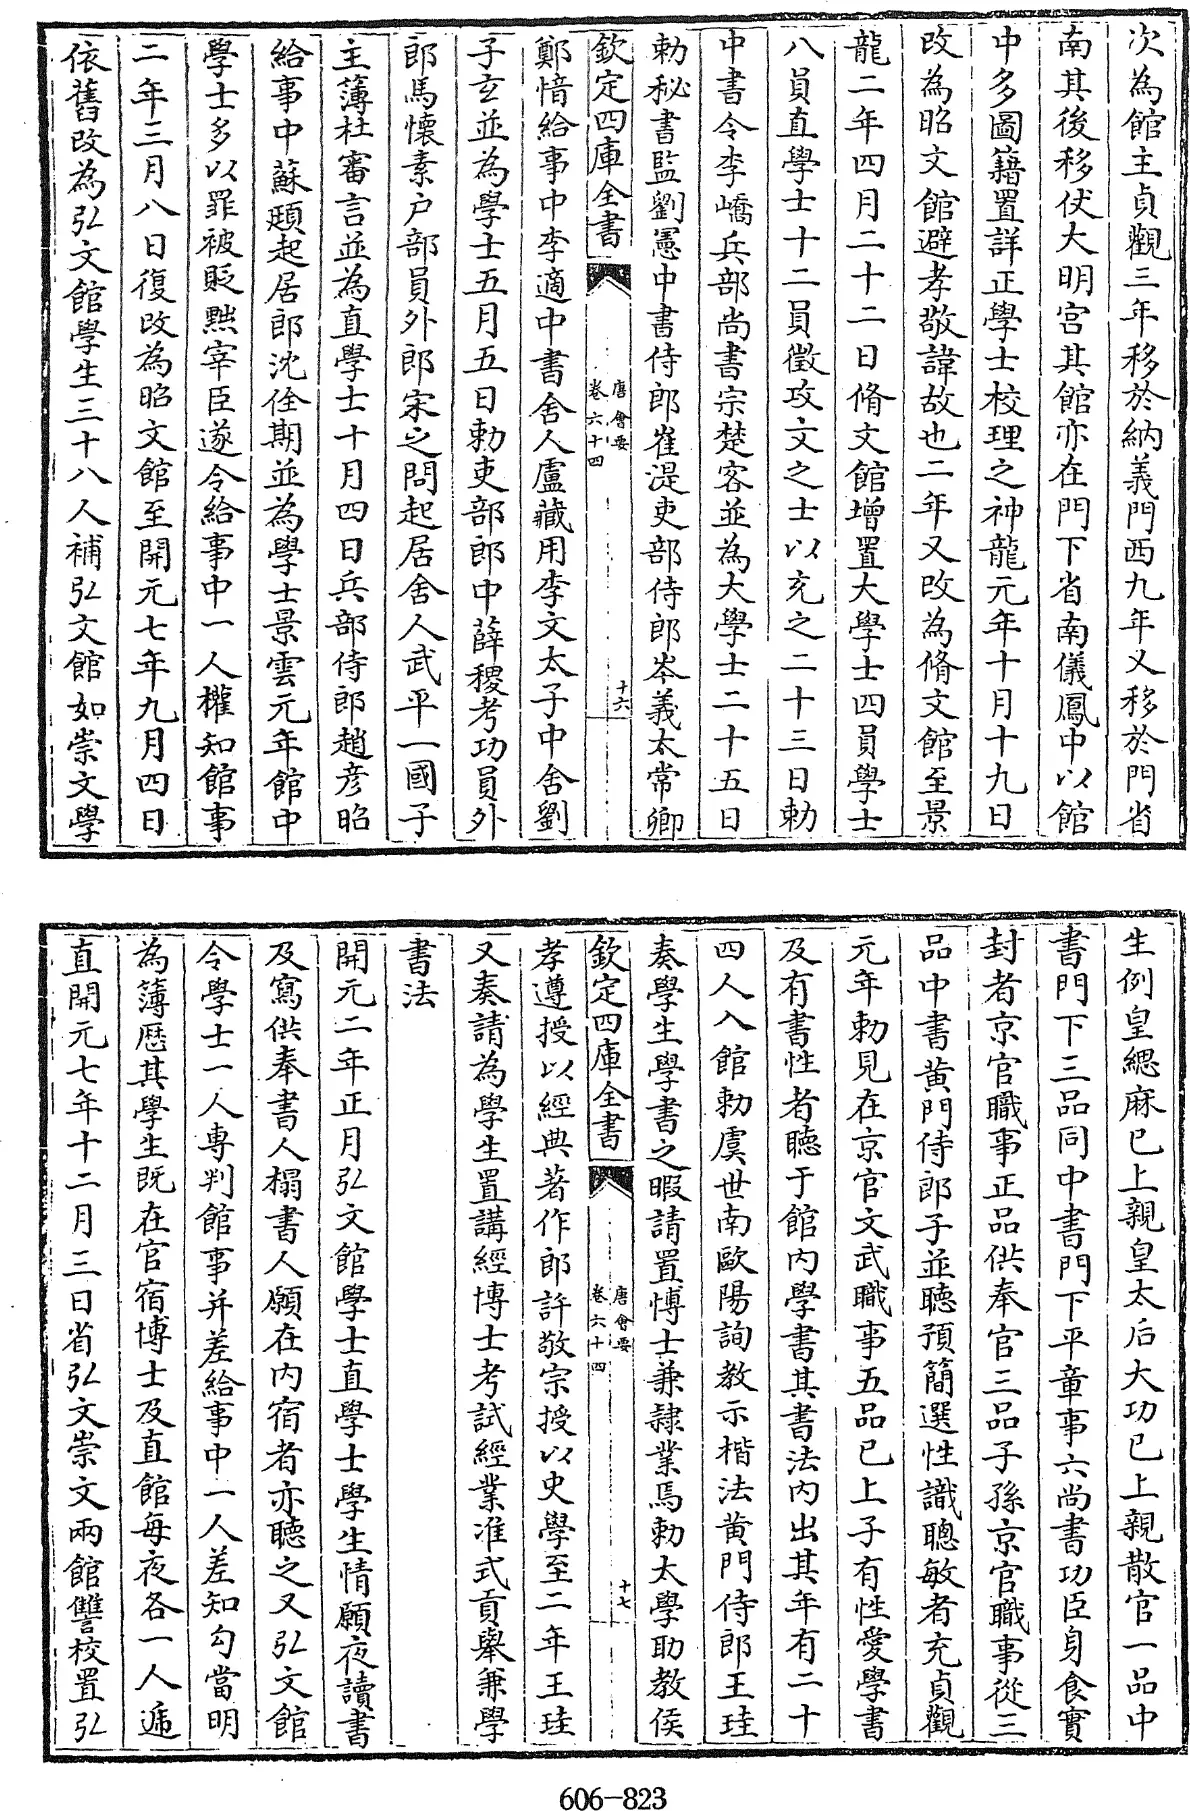 次為館主貞觀三年移於納義門西九年又移於門省
南其後移仗大明宮其館亦在門下省南儀鳳中以館
中多圖籍置詳正學士校理之神龍元年十月十九日
改為昭文館避孝敬諱故也二年又改為脩文館至景
龍二年四月二十二日脩文館增置大學士四員學士
八員直學士十二員徵攻文之士以充之二十三日勅
中書令李嶠兵部尚書宗楚客並為大學士二十五日
勅秘書監劉憲中書侍郎崔湜吏部侍郎岑羲太常卿
欽定四庫全書
唐會要
卷六十四
十六
鄭愔給事中李適中書舍人盧藏用李文太子中舍劉
子玄並為學士五月五日勅吏部郎中薛稷考功員外
郎馬懷素户部員外郎宋之問起居舍人武平一國子
主簿杜審言並為直學士十月四日兵部侍郎趙彦昭
給事中蘇頲起居郎沈佺期並為學士景雲元年館中
學士多以罪被貶黜宰臣遂令給事中一人權知館事
二年三月八日復改為昭文館至開元七年九月四日
依舊改為弘文館學生三十八人補弘文館如崇文學
生例皇緦麻已上親皇太后大功已上親散官一品中
書門下三品同中書門下平章事六尚書功臣身食實
封者京官職事正品供奉官三品子孫京官職事從三
品中書黄門侍郎子並聽預簡選性識聰敏者充貞觀
元年勅見在京官文武職事五品已上子有性愛學書
及有書性者聽于館内學書其書法内出其年有二十
四人入館勅虞世南歐陽詢教示楷法黄門侍郎王珪
奏學生學書之暇請置博士兼隷業焉勅太學助教侯
欽定四庫全書
唐會要
卷六十四
十七
孝遵授以經典著作郎許敬宗授以史學至二年王珪
又奏請為學生置講經博士考試經業准式貢舉兼學
書法
開元二年正月弘文館學士直學士學生情願夜讀書
及寫供奉書人搨書人願在内宿者亦聽之又弘文館
令學士一人専判館事并差給事中一人差知勾當明
為簿歴其學生既在官宿博士及直館每夜各一人遞
直開元七年十二月三日省弘文崇文兩館讐校置弘
606-823